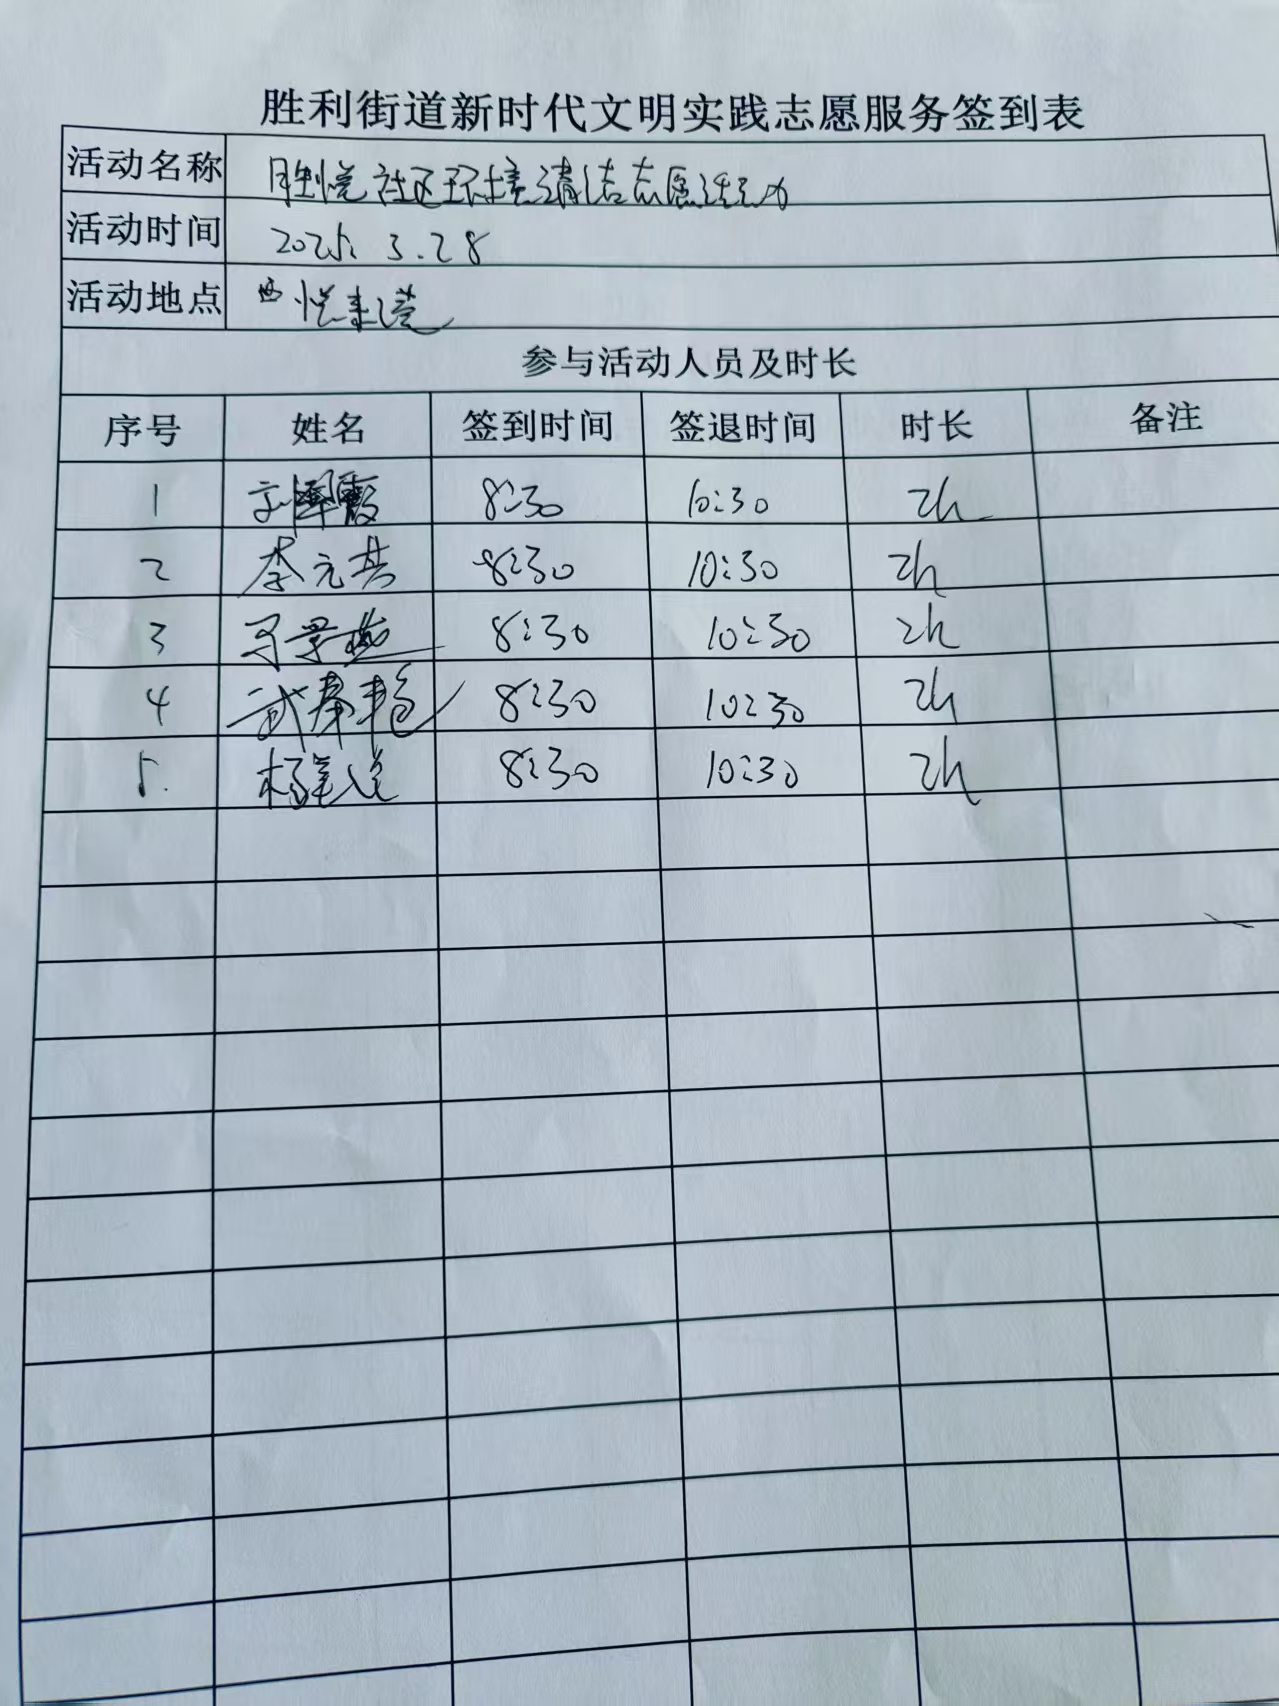 胜利街道新时代文明实践志愿服务签到表
活动名称 胜悦社区环境清洁志愿活动
活动时间 2025.3.28
活动地点 西悦来港
参与活动人员及时长
序号 姓名 签到时间 签退时间 时长 备注
1 刘泽霞 8:30 10:30 2h
2 李元共 8:30 10:30 2h
3 8:30 10:30 2h
4 武春艳 8:30 10:30 2h
5. 8:30 10:30 2h